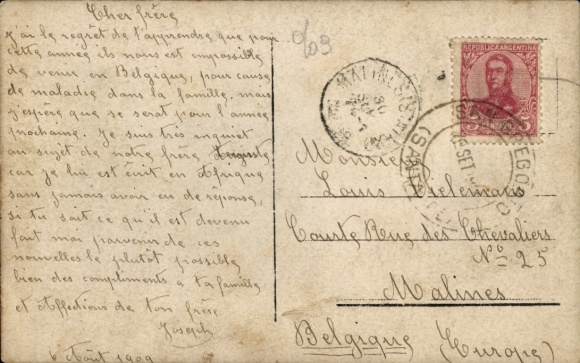 Cher frère
j'ai le regrêt de t'apprendre que pour
cette année ils nous est impossible
de venir en Belgique, pour cause
de maladie dans la famille, mais
j'espère que se serat pour l'année
prochaine. Je suis tres inquiet
au sujet de notre frère Auguste
car je lui est écrit en Afrique
sans jamais avoir eu de réponse,
si tu sait ce qu'il est devenu
fait moi parvenir de ces
nouvelles le plutôt possible
bien des compliments a ta famille
et Affections de ton frère
Joseph
6 Août 1909
0/09
REPUBLICA ARGENTINA
5
MALINES
Monsieur
Louis Tielemans
Courte Rue des Chevaliers
No 25
Malines
Belgique (Europe)